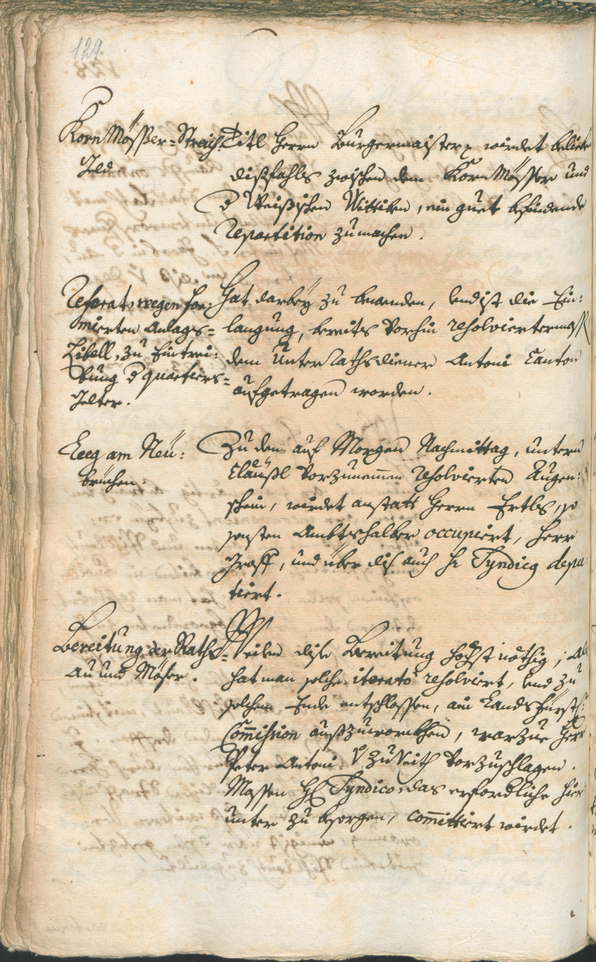 129.
Korn Mösser-Streich
Geld.
Titl Herrn Burgermaister wirdet beliebe
dißfahls zwischen dem Korn Mösser und
Weisischen Wittiben, ein guet befindende
repartition zumachen.
Referat wegen for-
mierten Anlags-
Libell, zu Eintrei-
bung d quartiers-
Gelter.
Hat darbey zu bewenden, und ist die Ein-
langung, bereits vorhin resolviertermass
dem Unter Rathsdiener Antoni Canton
aufgetragen worden.
Leeg am Neü-
brüchen.
Zu den auf Morgen Nachmittag, untern
Cläußl vorzunemmen resolvierten Augen-
schein, wirdet anstatt Herrn Ertls, so
sonsten Ambtshalber occupiert, Herr
Graff, und über diß auch H. Syndicg depu
tiert.
Bereitung der Raths-
Au und Möser.
Weilen dise Bereitung höchst nöthig, als
hat man solche iterato resolviert, und zu
solchem Ende entschlossen, ain Landsfürstl.
Commission außzuwürkhen, warzue Herr
Peter Antoni V. Zu Veith vorzuschlagen.
Massen H. Syndico, das erforderliche hier
unter zu besorgen, committiert wirdet.